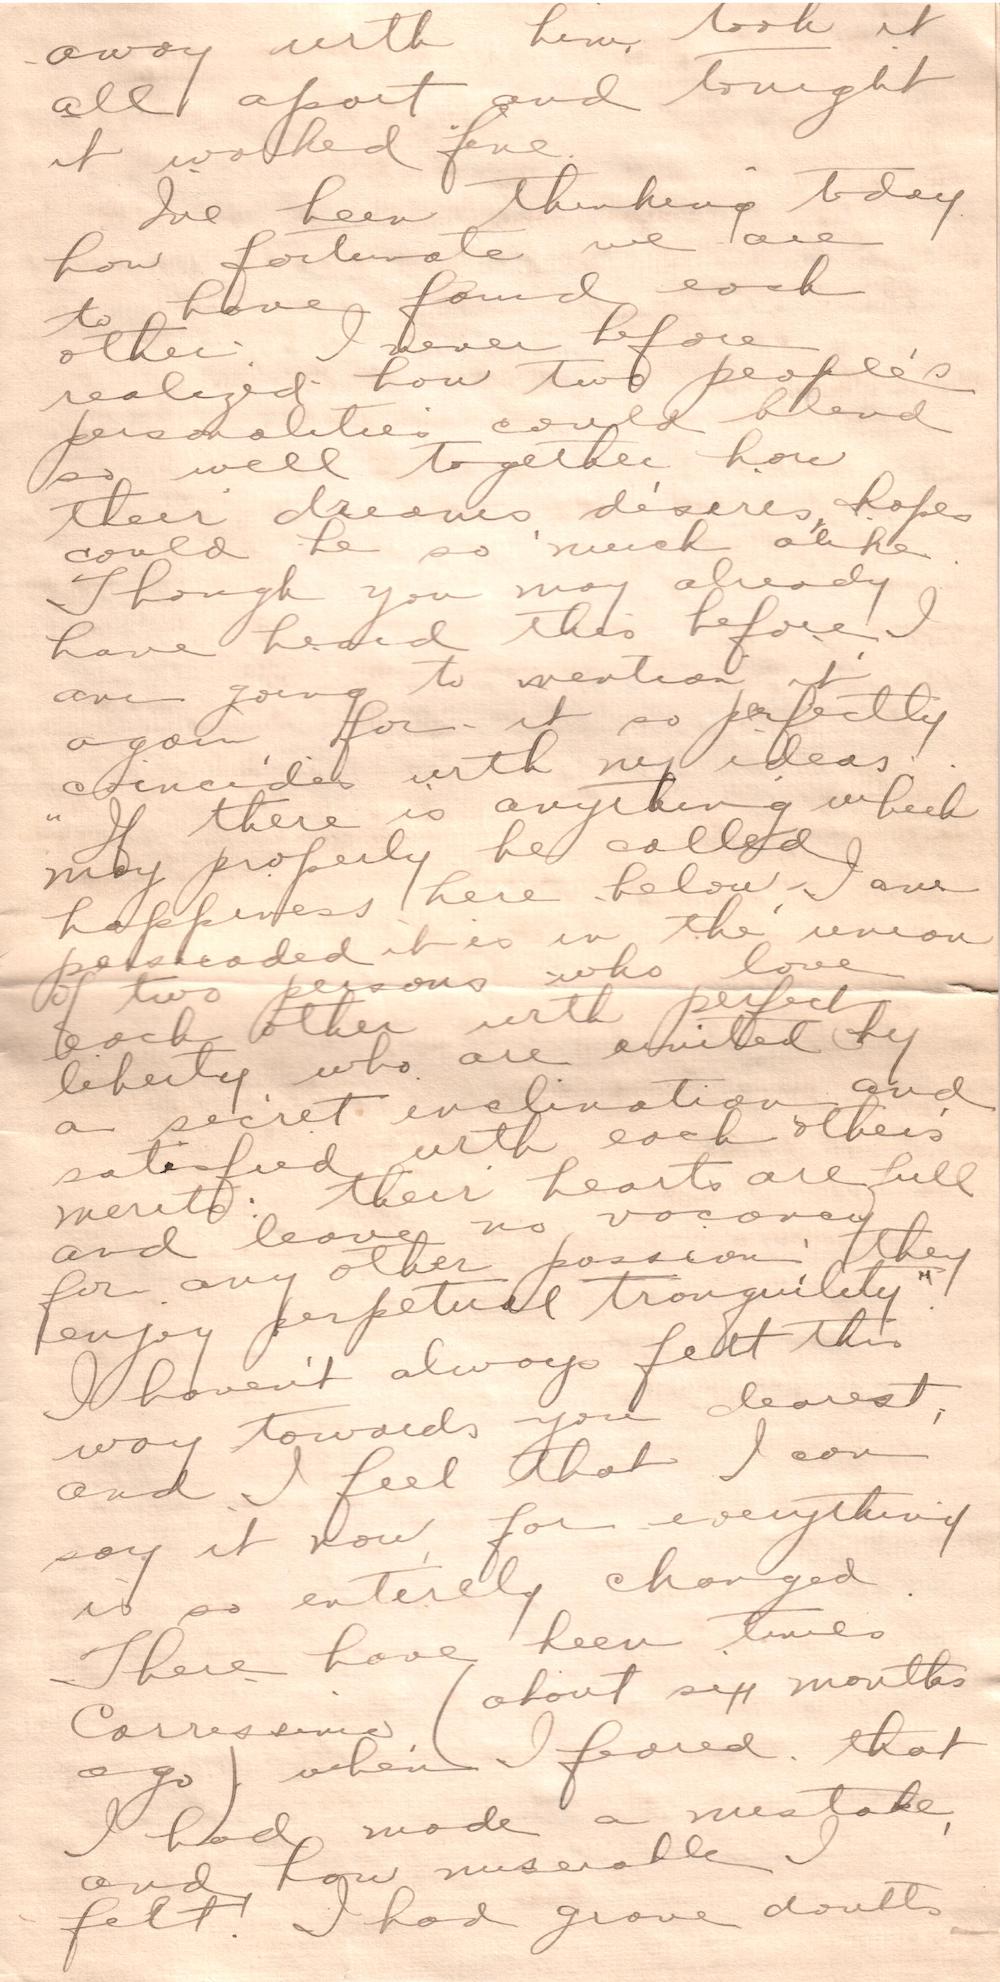 away with him, took it
all apart and tonight
it worked fine.
I've been thinking today
how fortunate we are
to have found each
other. I never before
realized how two people's
personalities could blend
so well together how
their dreams, desires, hopes
could be so much alike.
Though you may already
have heard this before, I
am going to mention it
again for it so perfectly
coincides with my ideas.
"If there is anything which
may properly be called
happiness here below, I am
persuaded it is in the union
of two persons who love
each other with perfect
liberty who are united by
a secret inclination and
satisfied with each other's
merits: their hearts are full
and leave no vacancy
for any other passion; they
enjoy perpetual tranquility".
I haven't always felt this
way towards you dearest,
and I feel that I can
say it now, for everything
is so enterely changed.
There have been times
Carressima (about six months
ago) when I feared that
I had made a mistake,
and how miserable I
felt! I had grave doubts